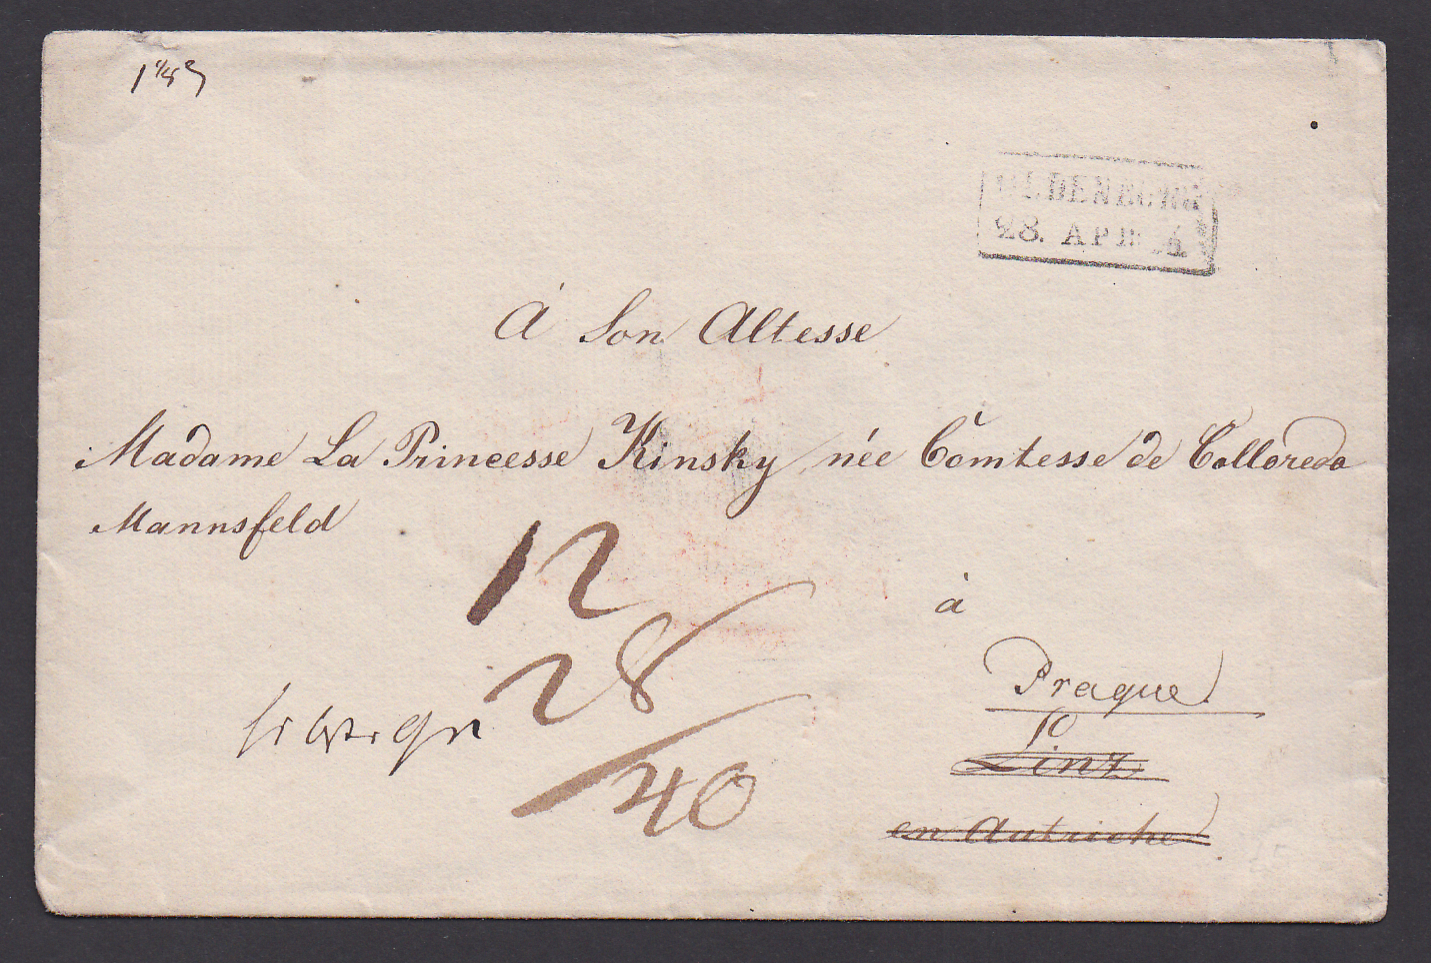 OLDENBURG
28. APR
À Son Altesse
Madame La Princesse Kinsky née Comtesse de Colloredo
Mannsfeld
12
à
28
Prague
10
40
Linz
en Autriche